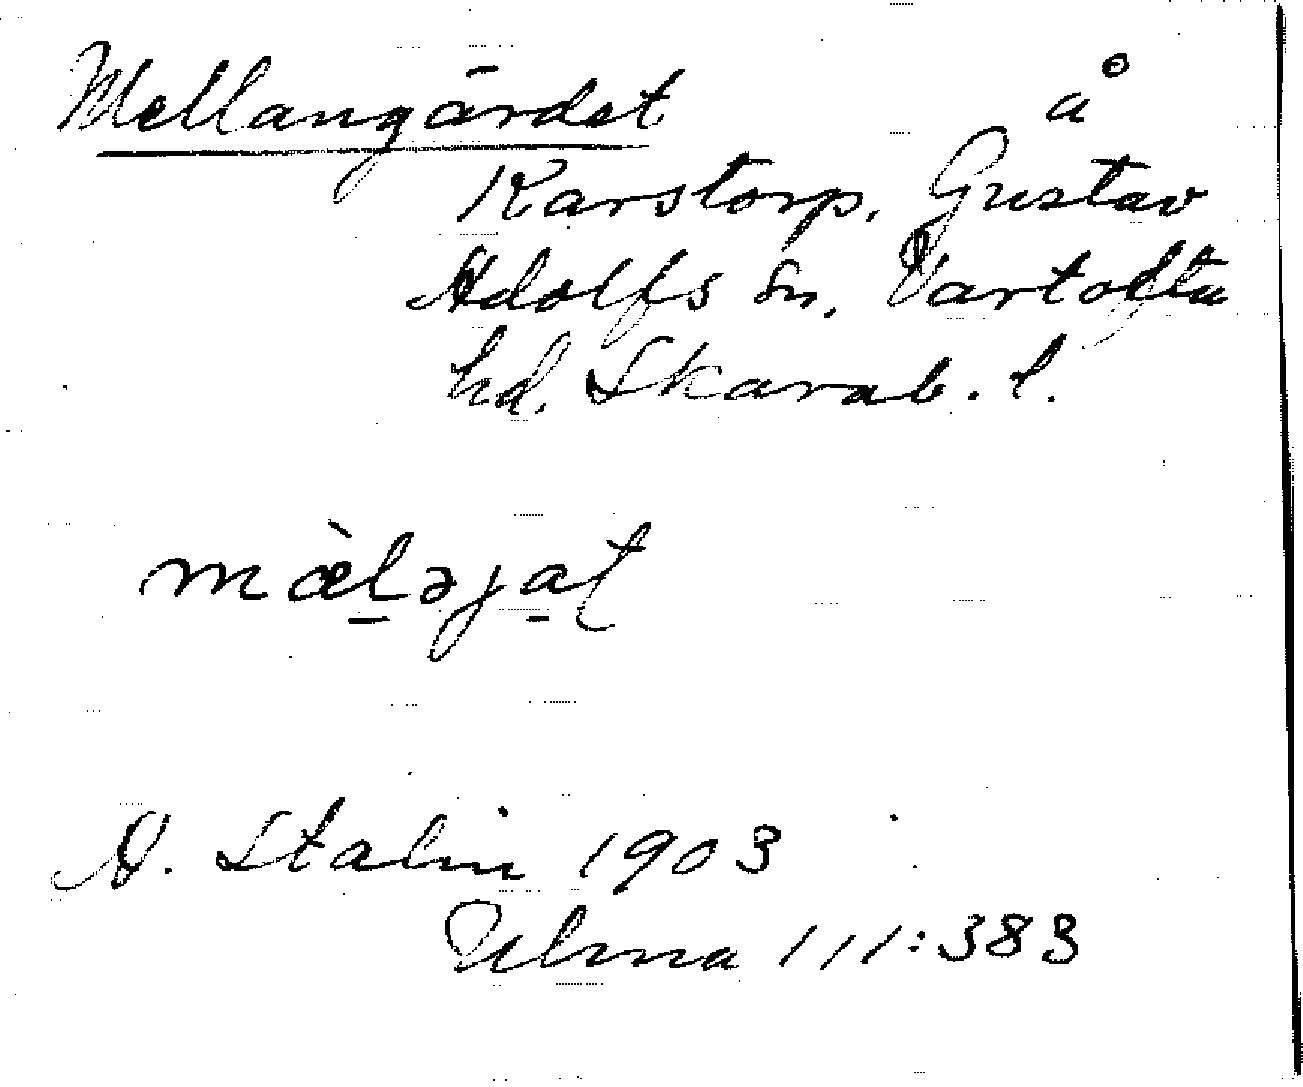 Mellangärdet å
Karstorp, Gustav
Adolfs sn, Vartofta
hd. Skarab. l.
mæ̀l̠əja̠t
A. Stalin 1903
Ulma 111:383